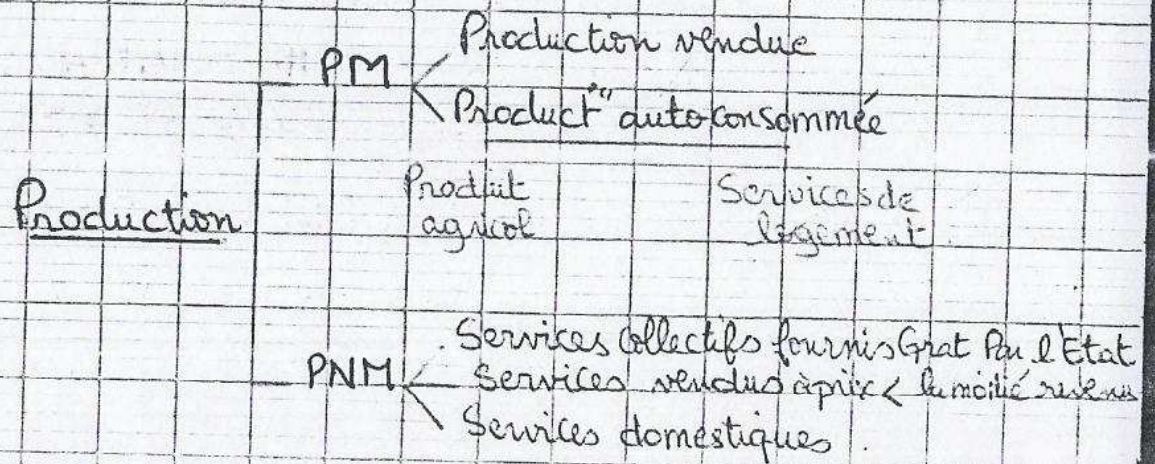 PM
Production vendue
Product° autoconsommée
Produit agricol
Services de logement
Production
PNM
Services collectifs fournis Grat Par l'Etat
Services vendus à prix < la moitié revenus
Services domestiques.